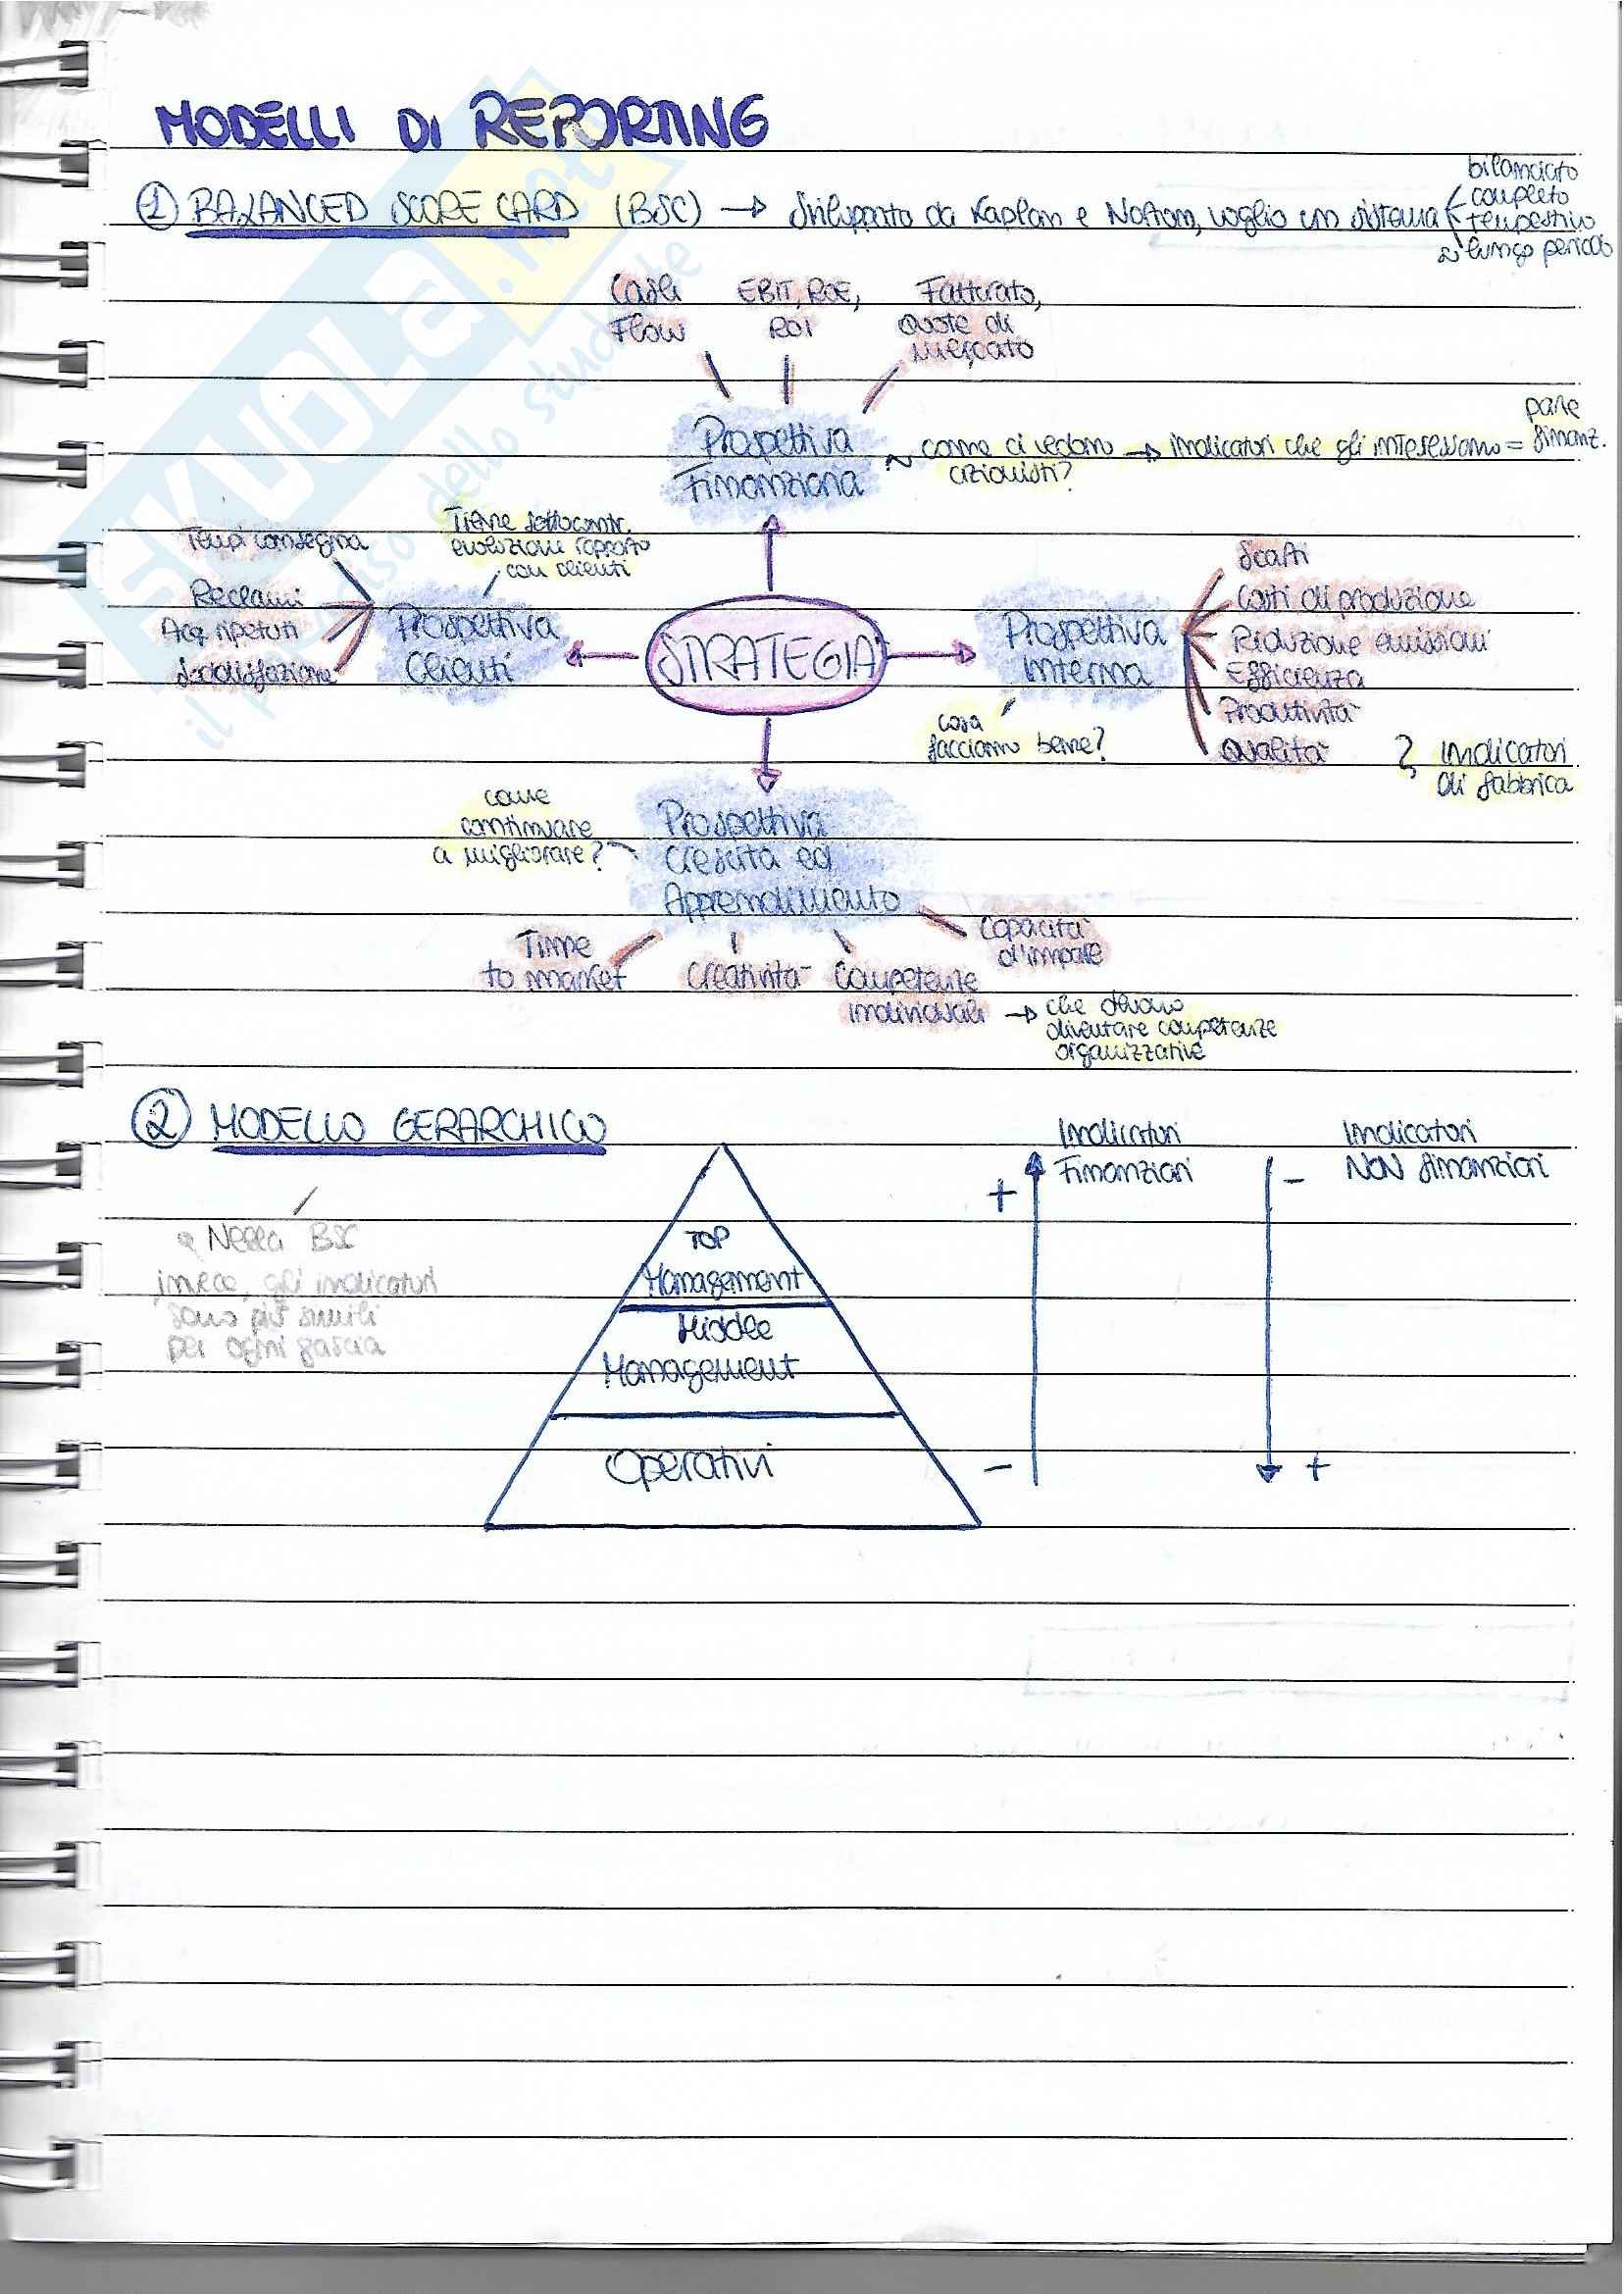 MODELLI DI REPORTING
bilanciato
① BALANCED SCORE CARD (BSC) → Sviluppato da Kaplan e Norton, voglio un sistema
completo
tempestivo
di lungo periodo
Cash
Flow
EBIT, ROE,
ROI
Fatturato,
Quote di
mercato
Prospettiva
Finanziaria
come ci vedono
azionisti?
→ indicatori che gli interessano =
parte
finanz.
Tempi consegna
Reclami
Acq ripetuti
Soddisfazione
Tiene sottocontr.
evoluzione rapporto
con clienti
Prospettiva
Clienti
STRATEGIA
Prospettiva
Interna
cosa
facciamo bene?
Scarti
Costi di produzione
Riduzione emissioni
Efficienza
Produttività
Qualità
indicatori
di fabbrica
come
continuare
a migliorare?
Prospettiva
Crescita ed
Apprendimento
Time
to market
Creatività
Competenze
individuali
→ che devono
diventare competenze
organizzative
Capacità
d'impare
② MODELLO GERARCHICO
Nella BSC
invece, gli indicatori
sono più simili
per ogni fascia
TOP
Management
Middle
Management
Operativi
Indicatori
Finanziari
+
-
Indicatori
NON finanziari
-
+
SKUOLA.net
il paradiso dello studente